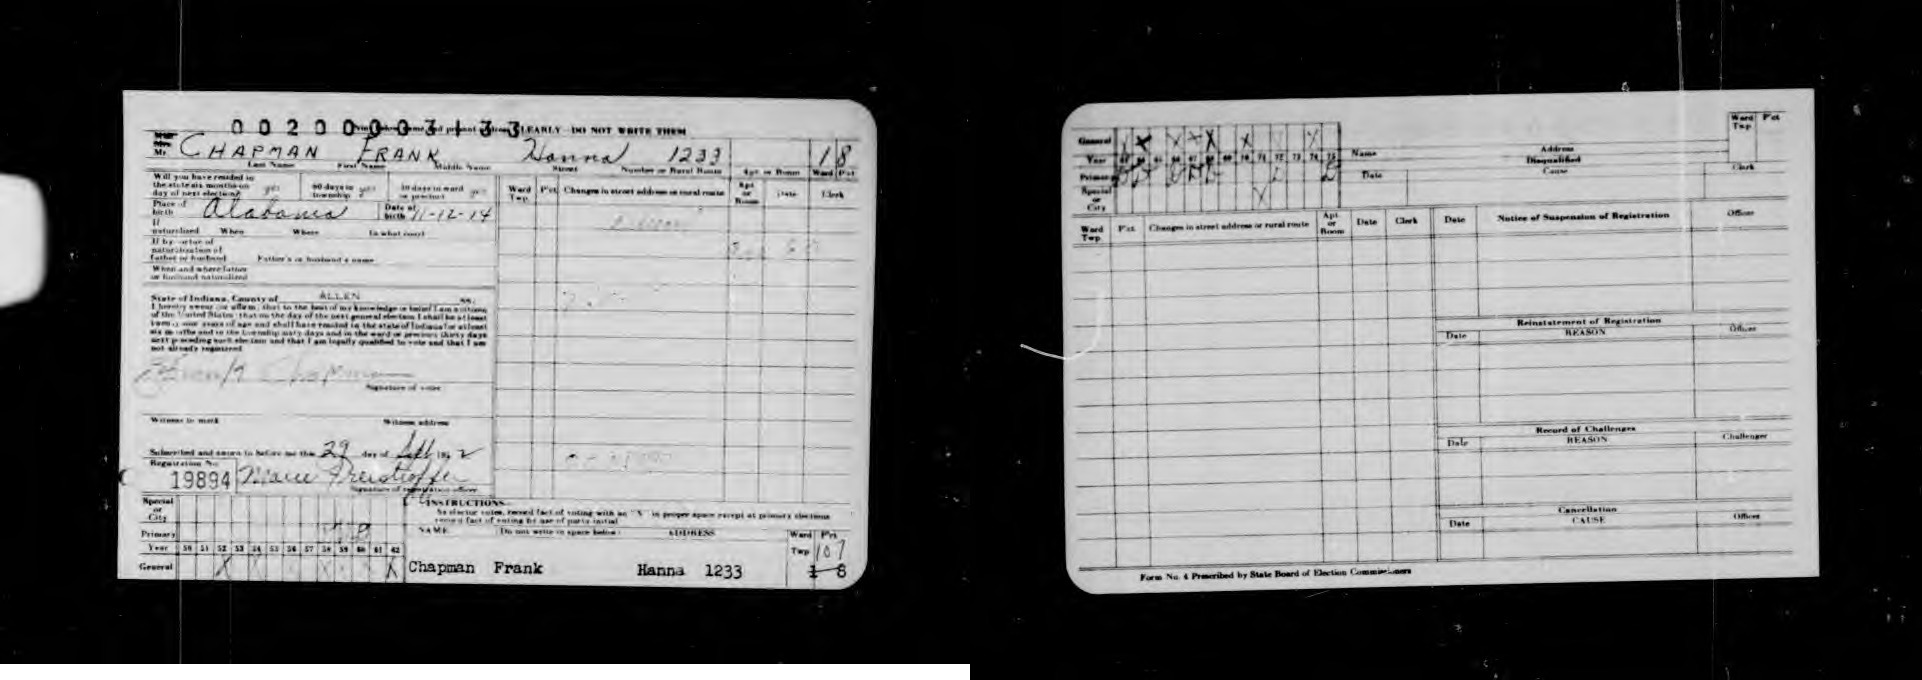 00200007133
CLEARLY DO NOT WRITE THEM
Mr. CHAPMAN FRANK Hanna 1233 1 8
Last Name First Name Middle Name Street Number or Rural Route Apt. or Room Ward Pct
Will you have resided in the state six months on day of next election? yes 60 days in township yes 30 days in ward or precinct yes
Ward Twp. Pct. Changes in street address or rural route Apt. or Room Date Clerk
Place of birth Alabama Date of birth 11-12-14
If naturalized When Where In what court
If by virtue of naturalization of father or husband Father's or husband's name
When and where father or husband naturalized
State of Indiana, County of ALLEN ss:
I hereby swear (or affirm) that to the best of my knowledge or belief I am a citizen
of the United States; that on the day of the next general election I shall be at least
twenty-one years of age and shall have resided in the state of Indiana for at least
six months and in the township sixty days and in the ward or precinct thirty days
next preceding such election and that I am legally qualified to vote and that I am
not already registered
Frank Chapman
Signature of voter
Witness to mark Witness address
Subscribed and sworn to before me this 29 day of Sept 19
Registration No.
19894 Marie
Signature of registration officer
Special or City
Primary
Year 50 51 52 53 54 55 56 57 58 59 60 61 62
General X X X
INSTRUCTIONS
As elector votes, record fact of voting with an "X" in proper space except at primary elections
record fact of voting by use of party initial
NAME Do not write in space below ADDRESS Ward Twp Pct
107
Chapman Frank Hanna 1233 1-8
General X X X X X X
Year 70 71 72 73 74 75
Primary
Special or City X
Name Address Ward Twp. Pct
Disqualified
Date Cause Clerk
Ward Twp. Pct. Changes in street address or rural route Apt. or Room Date Clerk
Date Notice of Suspension of Registration Officer
Reinstatement of Registration
Date REASON Officer
Record of Challenges
Date REASON Challenger
Cancellation
Date CAUSE Officer
Form No. 4 Prescribed by State Board of Election Commissioners